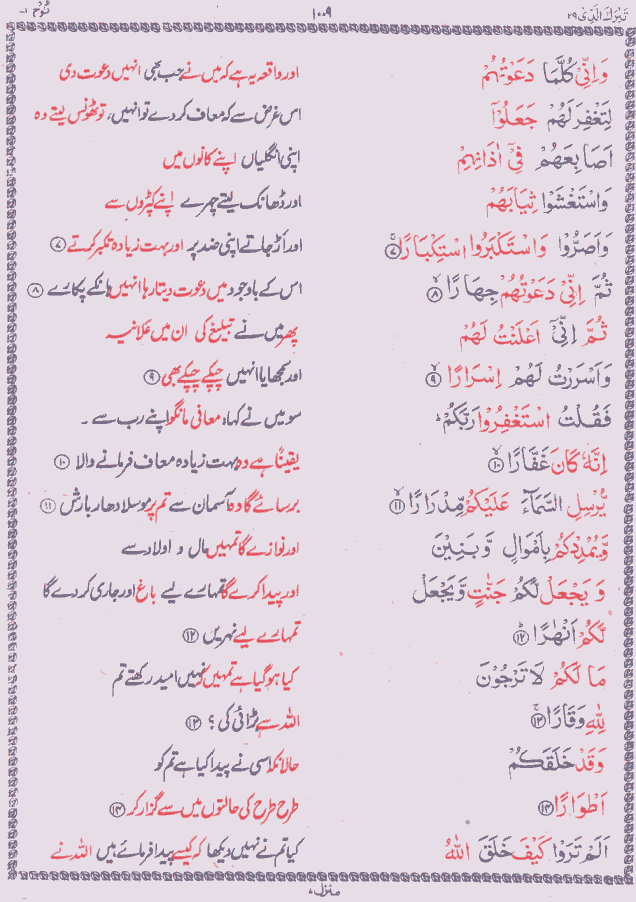 تَبٰرَكَ الَّذِىْ ٢٩
١٠٠٩
نُوْح ١۔
وَاِنِّىْ كُلَّمَا دَعَوْتُهُمْ
اور واقعہ یہ ہے کہ میں نے جب بھی انہیں دعوت دی
لِتَغْفِرَ لَهُمْ جَعَلُوْٓا
اس غرض سے کہ معاف کر دے تو انہیں، تو ٹھونس لیتے وہ
اَصَابِعَهُمْ فِىْٓ اٰذَانِهِمْ
اپنی انگلیاں اپنے کانوں میں
وَاسْتَغْشَوْا ثِيَابَهُمْ
اور ڈھانک لیتے چہرے اپنے کپڑوں سے
وَاَصَرُّوْا وَاسْتَكْبَرُوا اسْتِكْبَارًا ۞٧
اور اَڑ جاتے اپنی ضد پر اور بہت زیادہ تکبر کرتے ۞٧
ثُمَّ اِنِّىْ دَعَوْتُهُمْ جِهَارًا ۞٨
اس کے باوجود میں دعوت دیتا رہا انہیں ہانکے پکارے ۞٨
ثُمَّ اِنِّىْٓ اَعْلَنْتُ لَهُمْ
پھر میں نے تبلیغ کی ان میں علانیہ
وَاَسْرَرْتُ لَهُمْ اِسْرَارًا ۞٩
اور سمجھایا انہیں چپکے چپکے بھی ۞٩
فَقُلْتُ اسْتَغْفِرُوْا رَبَّكُمْ ؕ
سو میں نے کہا، معافی مانگو اپنے رب سے ۔
اِنَّهٗ كَانَ غَفَّارًا ۞١٠
یقیناً ہے وہ بہت زیادہ معاف فرمانے والا ۞١٠
يُّرْسِلِ السَّمَآءَ عَلَيْكُمْ مِّدْرَارًا ۞١١
برسائے گا وہ آسمان سے تم پر موسلا دھار بارش ۞١١
وَّيُمْدِدْكُمْ بِاَمْوَالٍ وَّبَنِيْنَ
اور نوازے گا تمہیں مال و اولاد سے
وَيَجْعَلْ لَّكُمْ جَنّٰتٍ وَّيَجْعَلْ
اور پیدا کرے گا تمہارے لیے باغ اور جاری کردے گا
لَّكُمْ اَنْهٰرًا ۞١٢
تمہارے لیے نہریں ۞١٢
مَا لَكُمْ لَا تَرْجُوْنَ
کیا ہو گیا ہے تمہیں کہ نہیں امید رکھتے تم
لِلّٰهِ وَقَارًا ۞١٣
اللہ سے بڑائی کی ؟ ۞١٣
وَقَدْ خَلَقَكُمْ
حالانکہ اسی نے پیدا کیا ہے تم کو
اَطْوَارًا ۞١٤
طرح طرح کی حالتوں میں سے گزار کر ۞١٤
اَلَمْ تَرَوْا كَيْفَ خَلَقَ اللّٰهُ
کیا تم نے نہیں دیکھا کہ کیسے پیدا فرمائے ہیں اللہ نے
منزل،